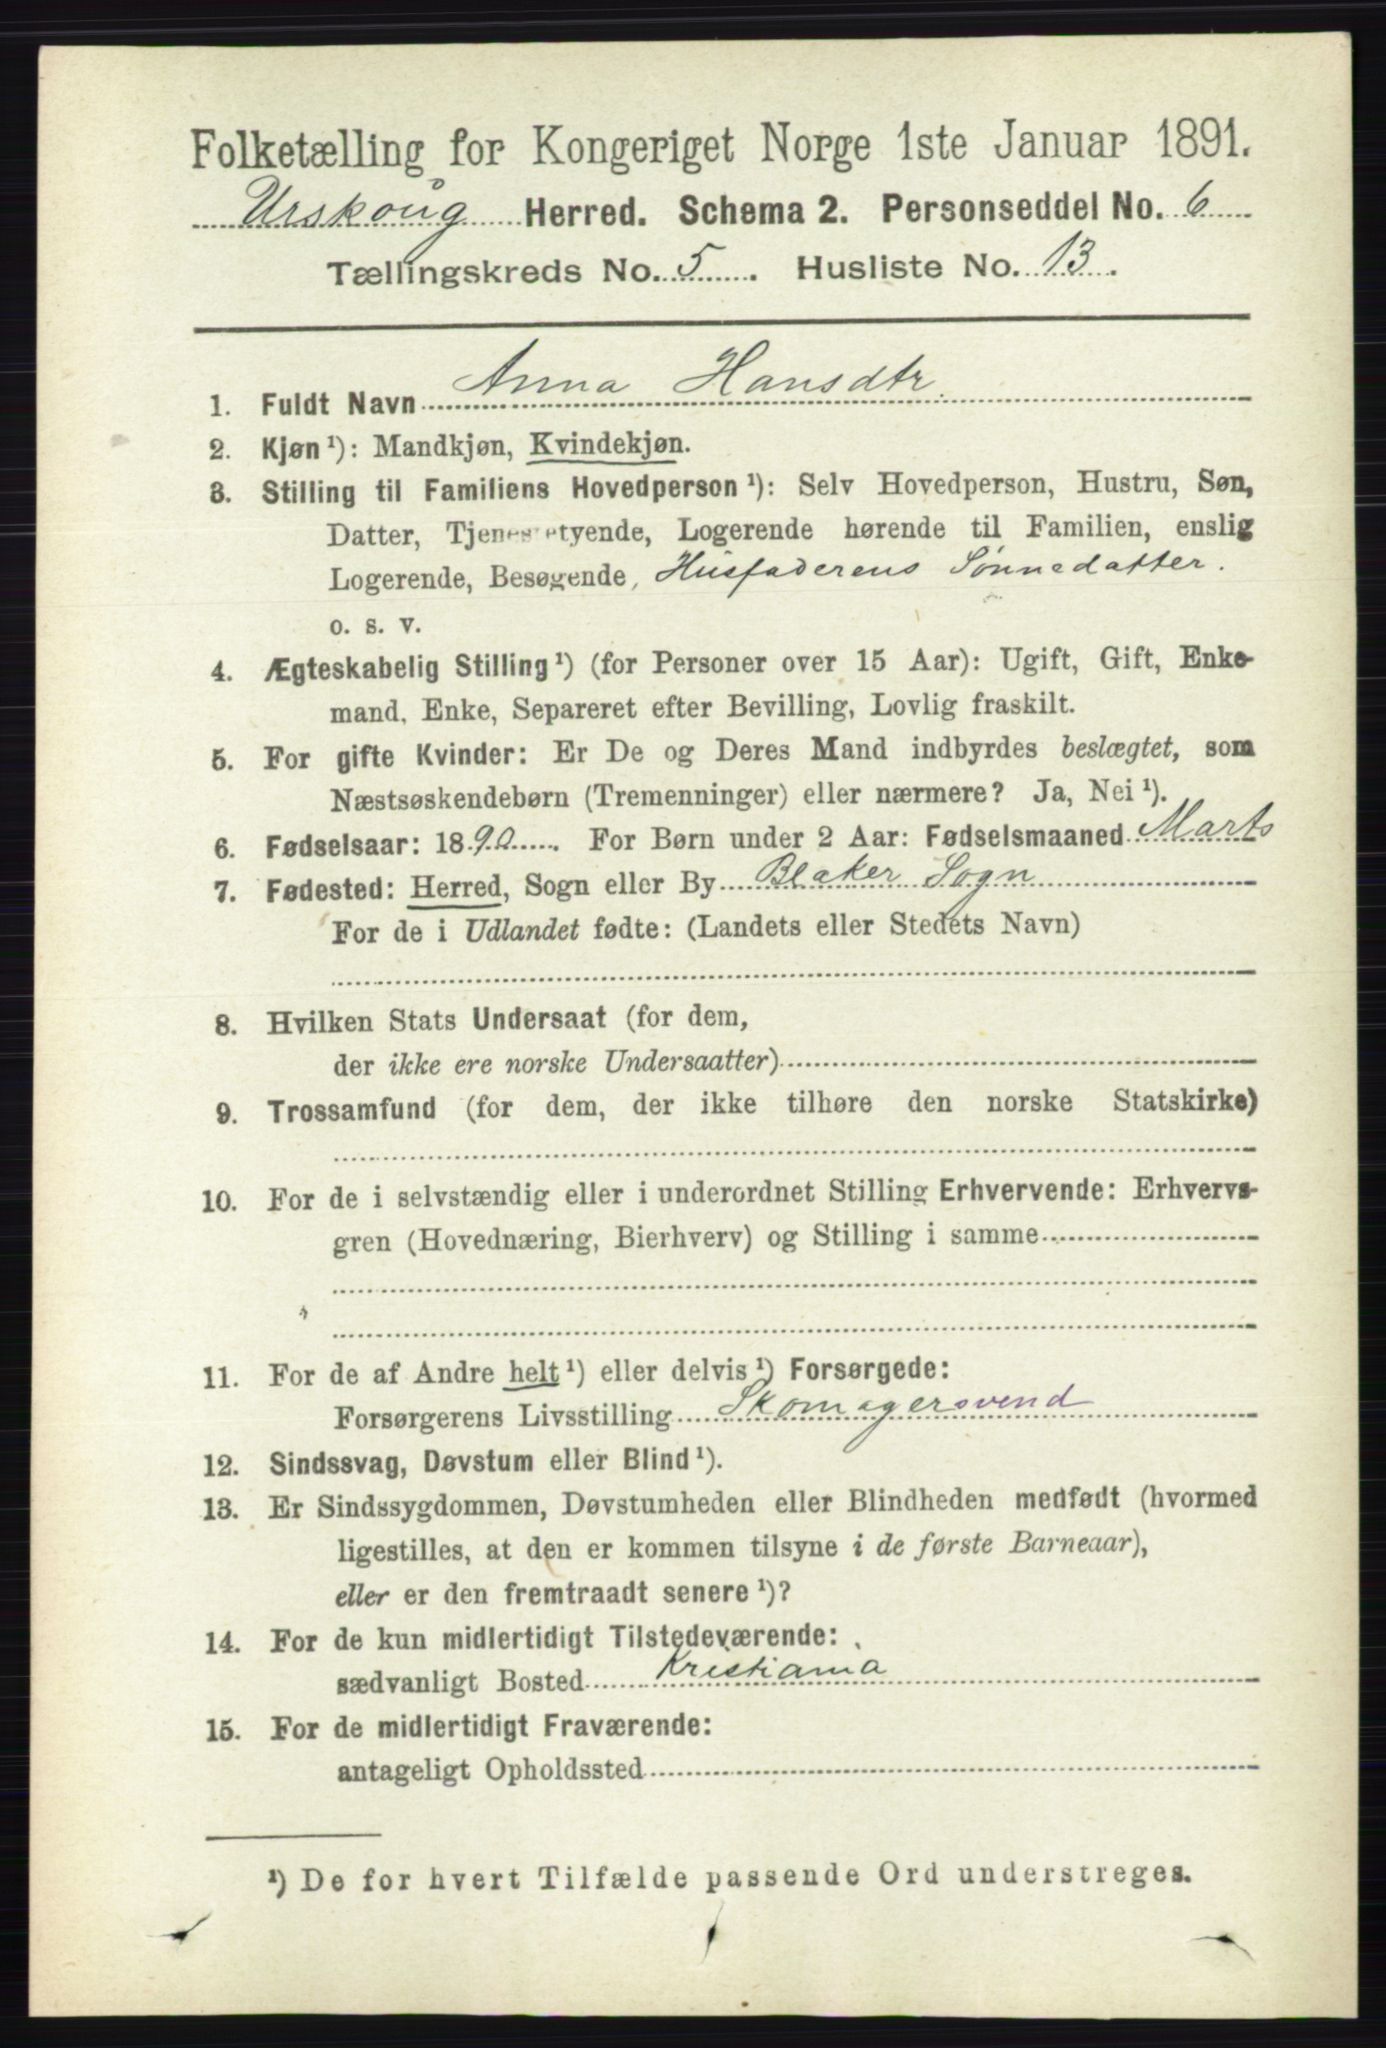 Folketælling for Kongeriget Norge 1ste Januar 1891.
Urskoug Herred. Schema 2. Personseddel No. 6
Tællingskreds No. 5. Husliste No. 13.
1. Fuldt Navn Anna Hansdtr.
2. Kjøn ¹): Mandkjøn, Kvindekjøn.
3. Stilling til Familiens Hovedperson ¹): Selv Hovedperson, Hustru, Søn,
Datter, Tjenestetyende, Logerende hørende til Familien, enslig
Logerende, Besøgende, Husfaderens Sønnedatter.
o. s. v.
4. Ægteskabelig Stilling ¹) (for Personer over 15 Aar): Ugift, Gift, Enke-
mand, Enke, Separeret efter Bevilling, Lovlig fraskilt.
5. For gifte Kvinder: Er De og Deres Mand indbyrdes beslægtet, som
Næstsøskendebørn (Tremenninger) eller nærmere? Ja, Nei ¹).
6. Fødselsaar: 1890. For Børn under 2 Aar: Fødselsmaaned Marts
7. Fødested: Herred, Sogn eller By Blaker Sogn
For de i Udlandet fødte: (Landets eller Stedets Navn)
8. Hvilken Stats Undersaat (for dem,
der ikke ere norske Undersaatter)
9. Trossamfund (for dem, der ikke tilhøre den norske Statskirke)
10. For de i selvstændig eller i underordnet Stilling Erhvervende: Erhvervs-
gren (Hovednæring, Bierhverv) og Stilling i samme
11. For de af Andre helt ¹) eller delvis ¹) Forsørgede:
Forsørgerens Livsstilling Skomagersvend
12. Sindssvag, Døvstum eller Blind ¹).
13. Er Sindssygdommen, Døvstumheden eller Blindheden medfødt (hvormed
ligestilles, at den er kommen tilsyne i de første Barneaar),
eller er den fremtraadt senere ¹)?
14. For de kun midlertidigt Tilstedeværende:
sædvanligt Bosted Kristiania
15. For de midlertidigt Fraværende:
antageligt Opholdssted
¹) De for hvert Tilfælde passende Ord understreges.